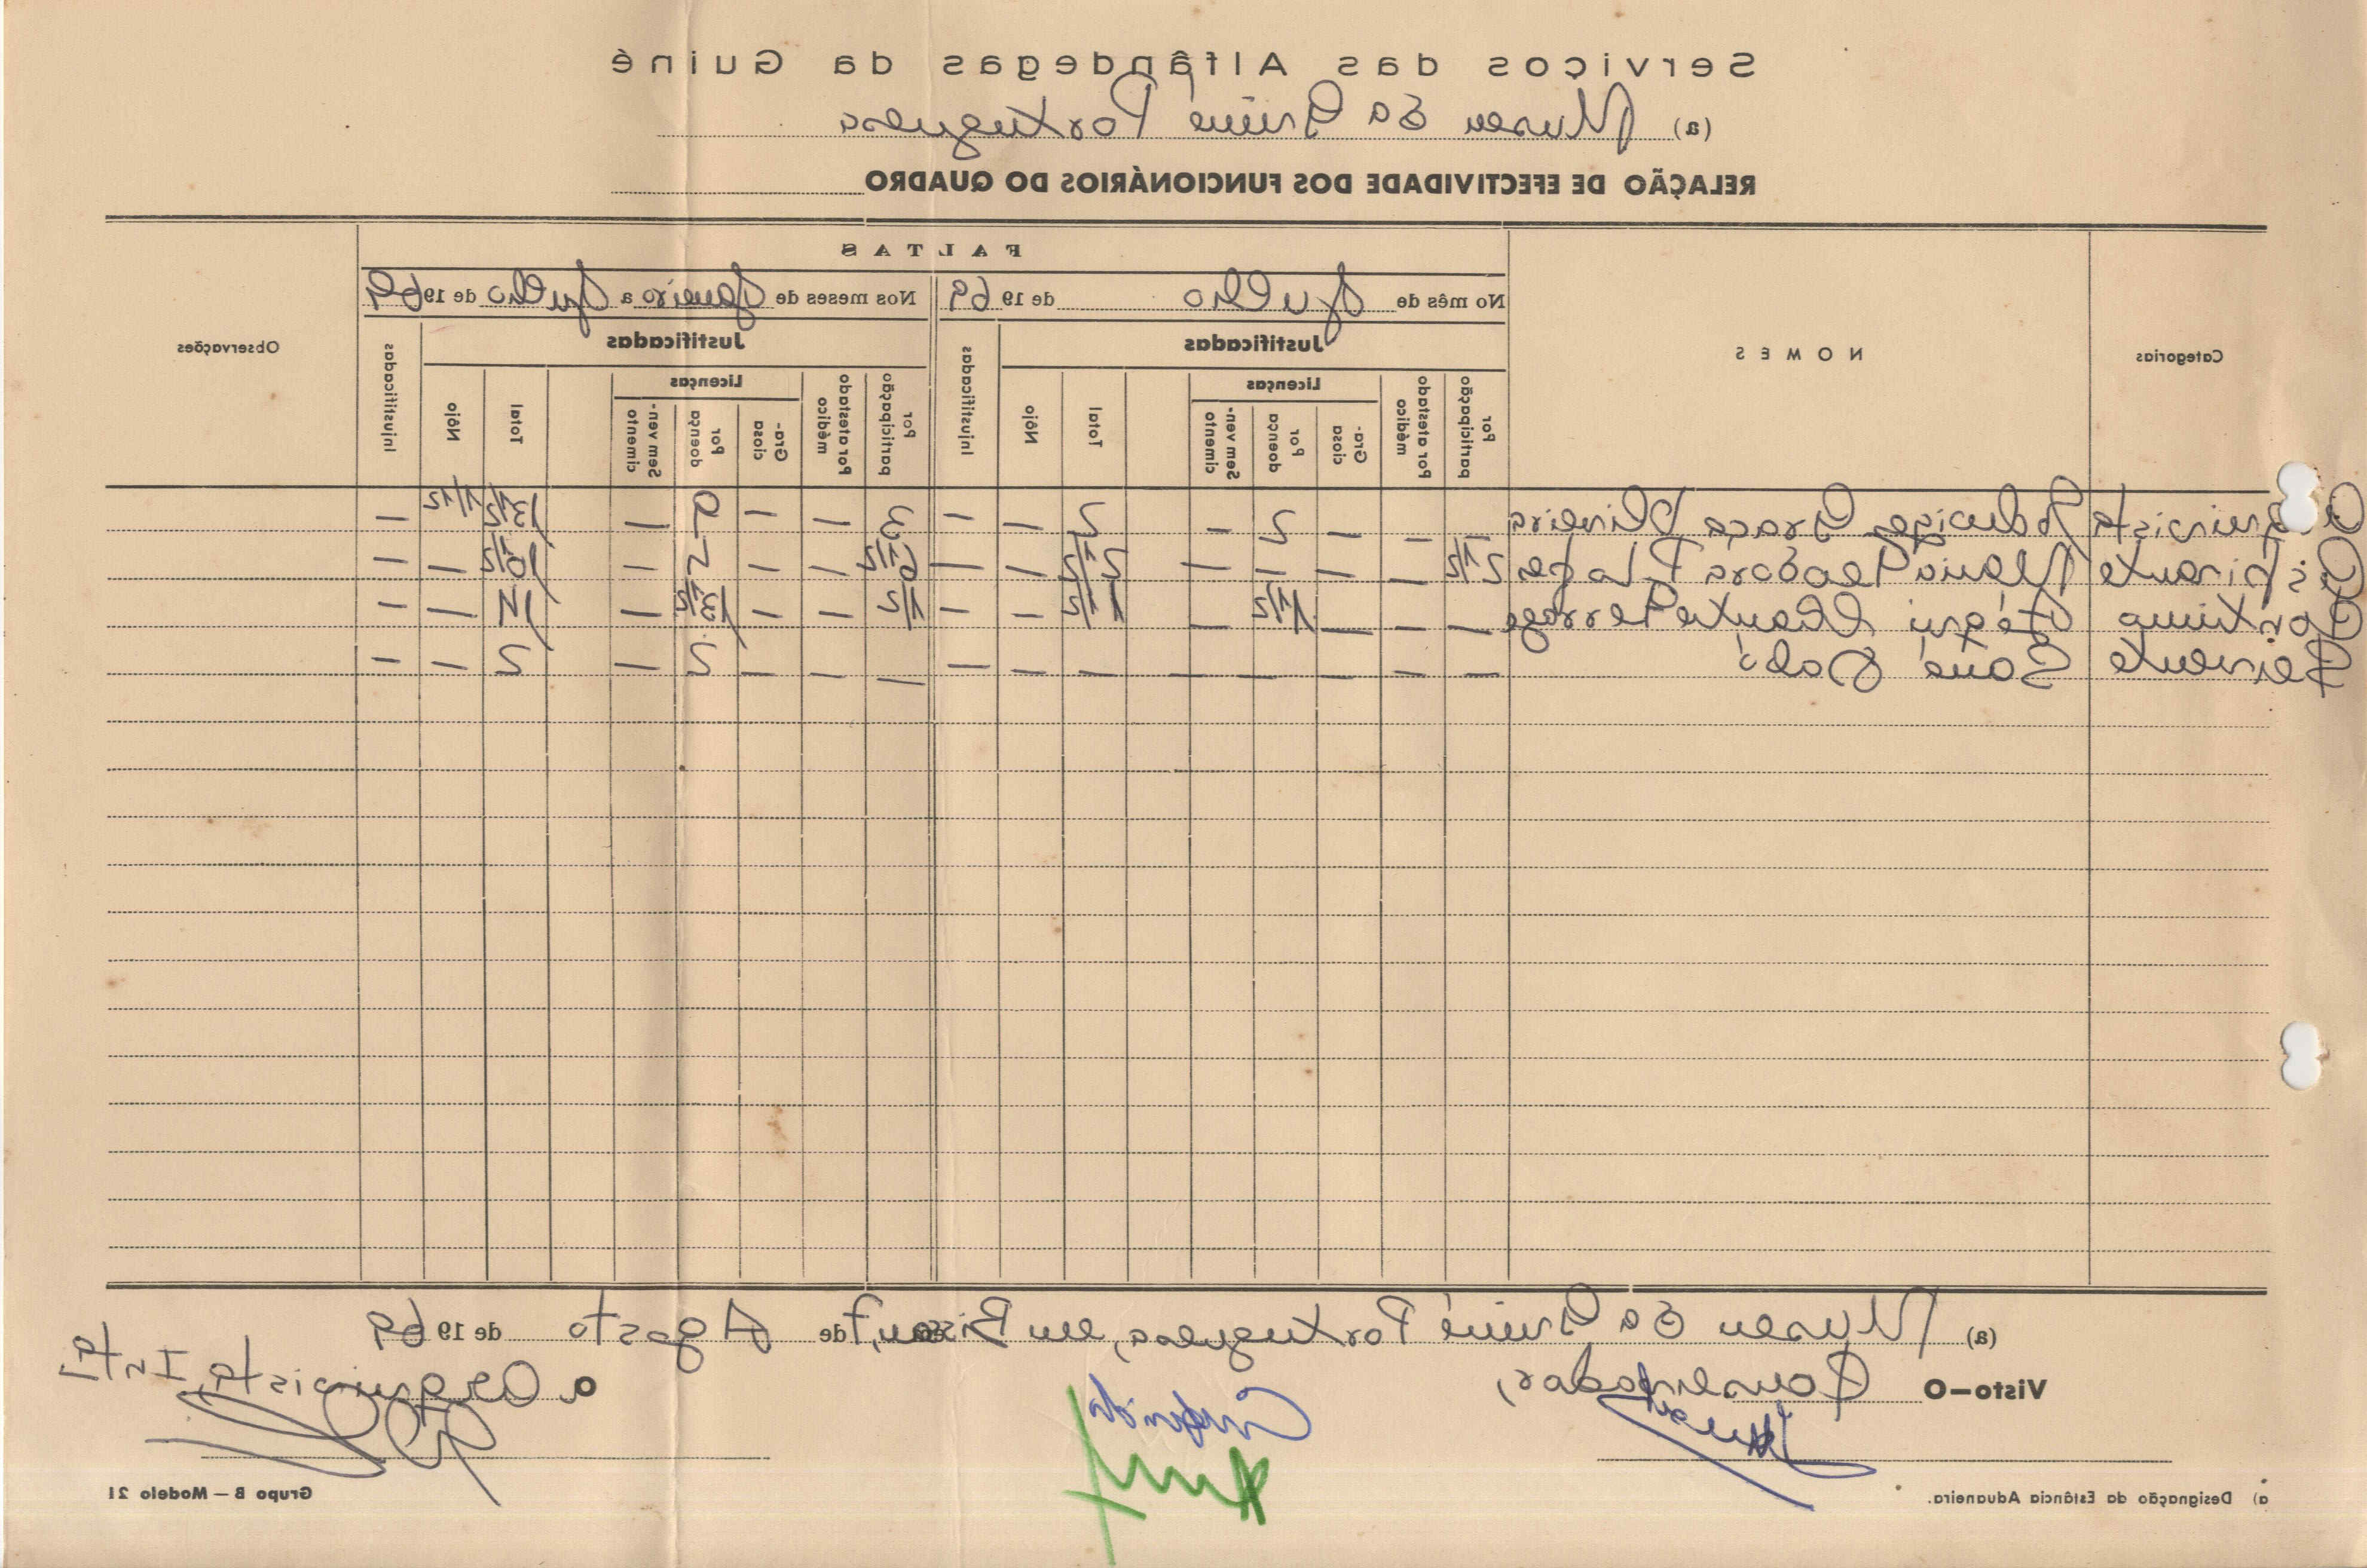 Serviços das Alfândegas da Guiné
(a) Museu da Guiné Portuguesa
RELAÇÃO DE EFECTIVIDADE DOS FUNCIONÁRIOS DO QUADRO
Categorias NOMES FALTAS Observações
No mês de Julho de 1969 Nos meses de Janeiro a Julho de 1969
Justificadas Injustificadas Justificadas Injustificadas
Por participação Por atestado médico Licenças Total Nôjo Por participação Por atestado médico Licenças Total Nôjo
Graciosa Por doença Sem vencimento Graciosa Por doença Sem vencimento
Arquivista Graça Oliveira — — — 2 — 2 — — 3 — — 9 — 13 1/2 1 1/2 —
Aspirante Maria Teodora 2 1/2 — — — — 2 1/2 — — 6 1/2 — — 2 — 10 1/2 — —
Contínuo — — — 1 1/2 — 1 1/2 — — 1/2 — — 13 1/2 — 14 — —
Servente — — — — — — — — — — — 2 — 2 — —
(a) Museu da Guiné Portuguesa, em Bissau, 7 de Agosto de 1969
Visto—O Conservador, a Arquivista, Intª
Conferido
a) Designação da Estância Aduaneira. Grupo B — Modelo 21